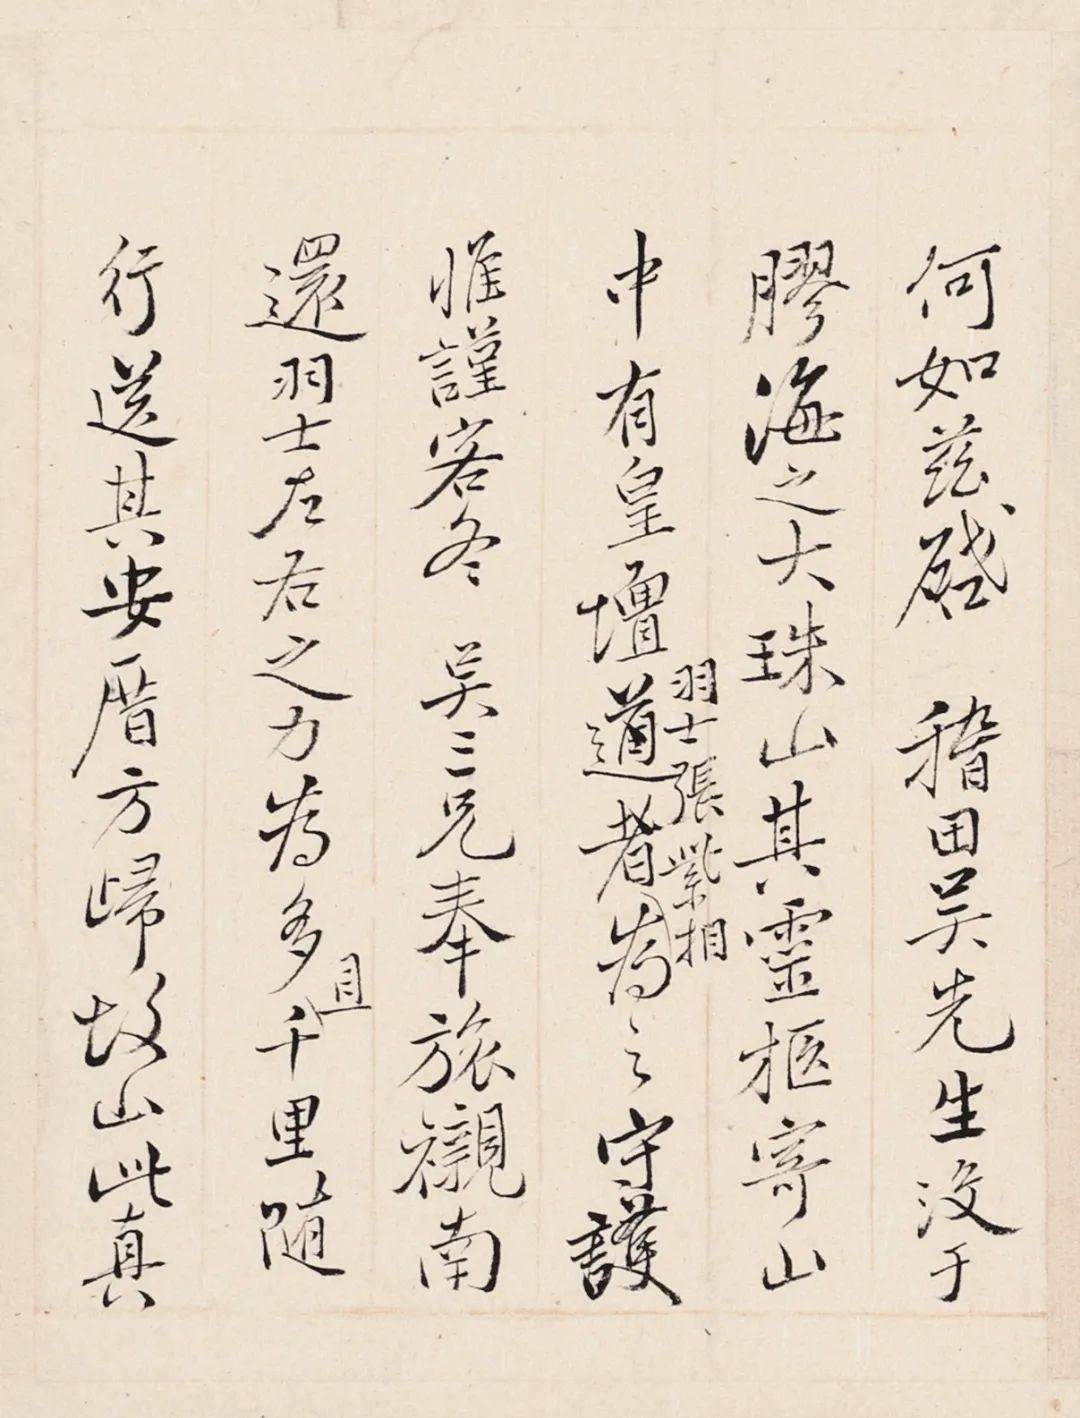 何如茲啟　稽田吳先生沒于
膠海之大珠山其靈柩寄山
中有皇壇道者為之守護
羽士張紫相
惟謹客冬　吳三兄奉旅櫬南
還羽士左右之力為多千里隨
且
行送其安厝方歸故山此真